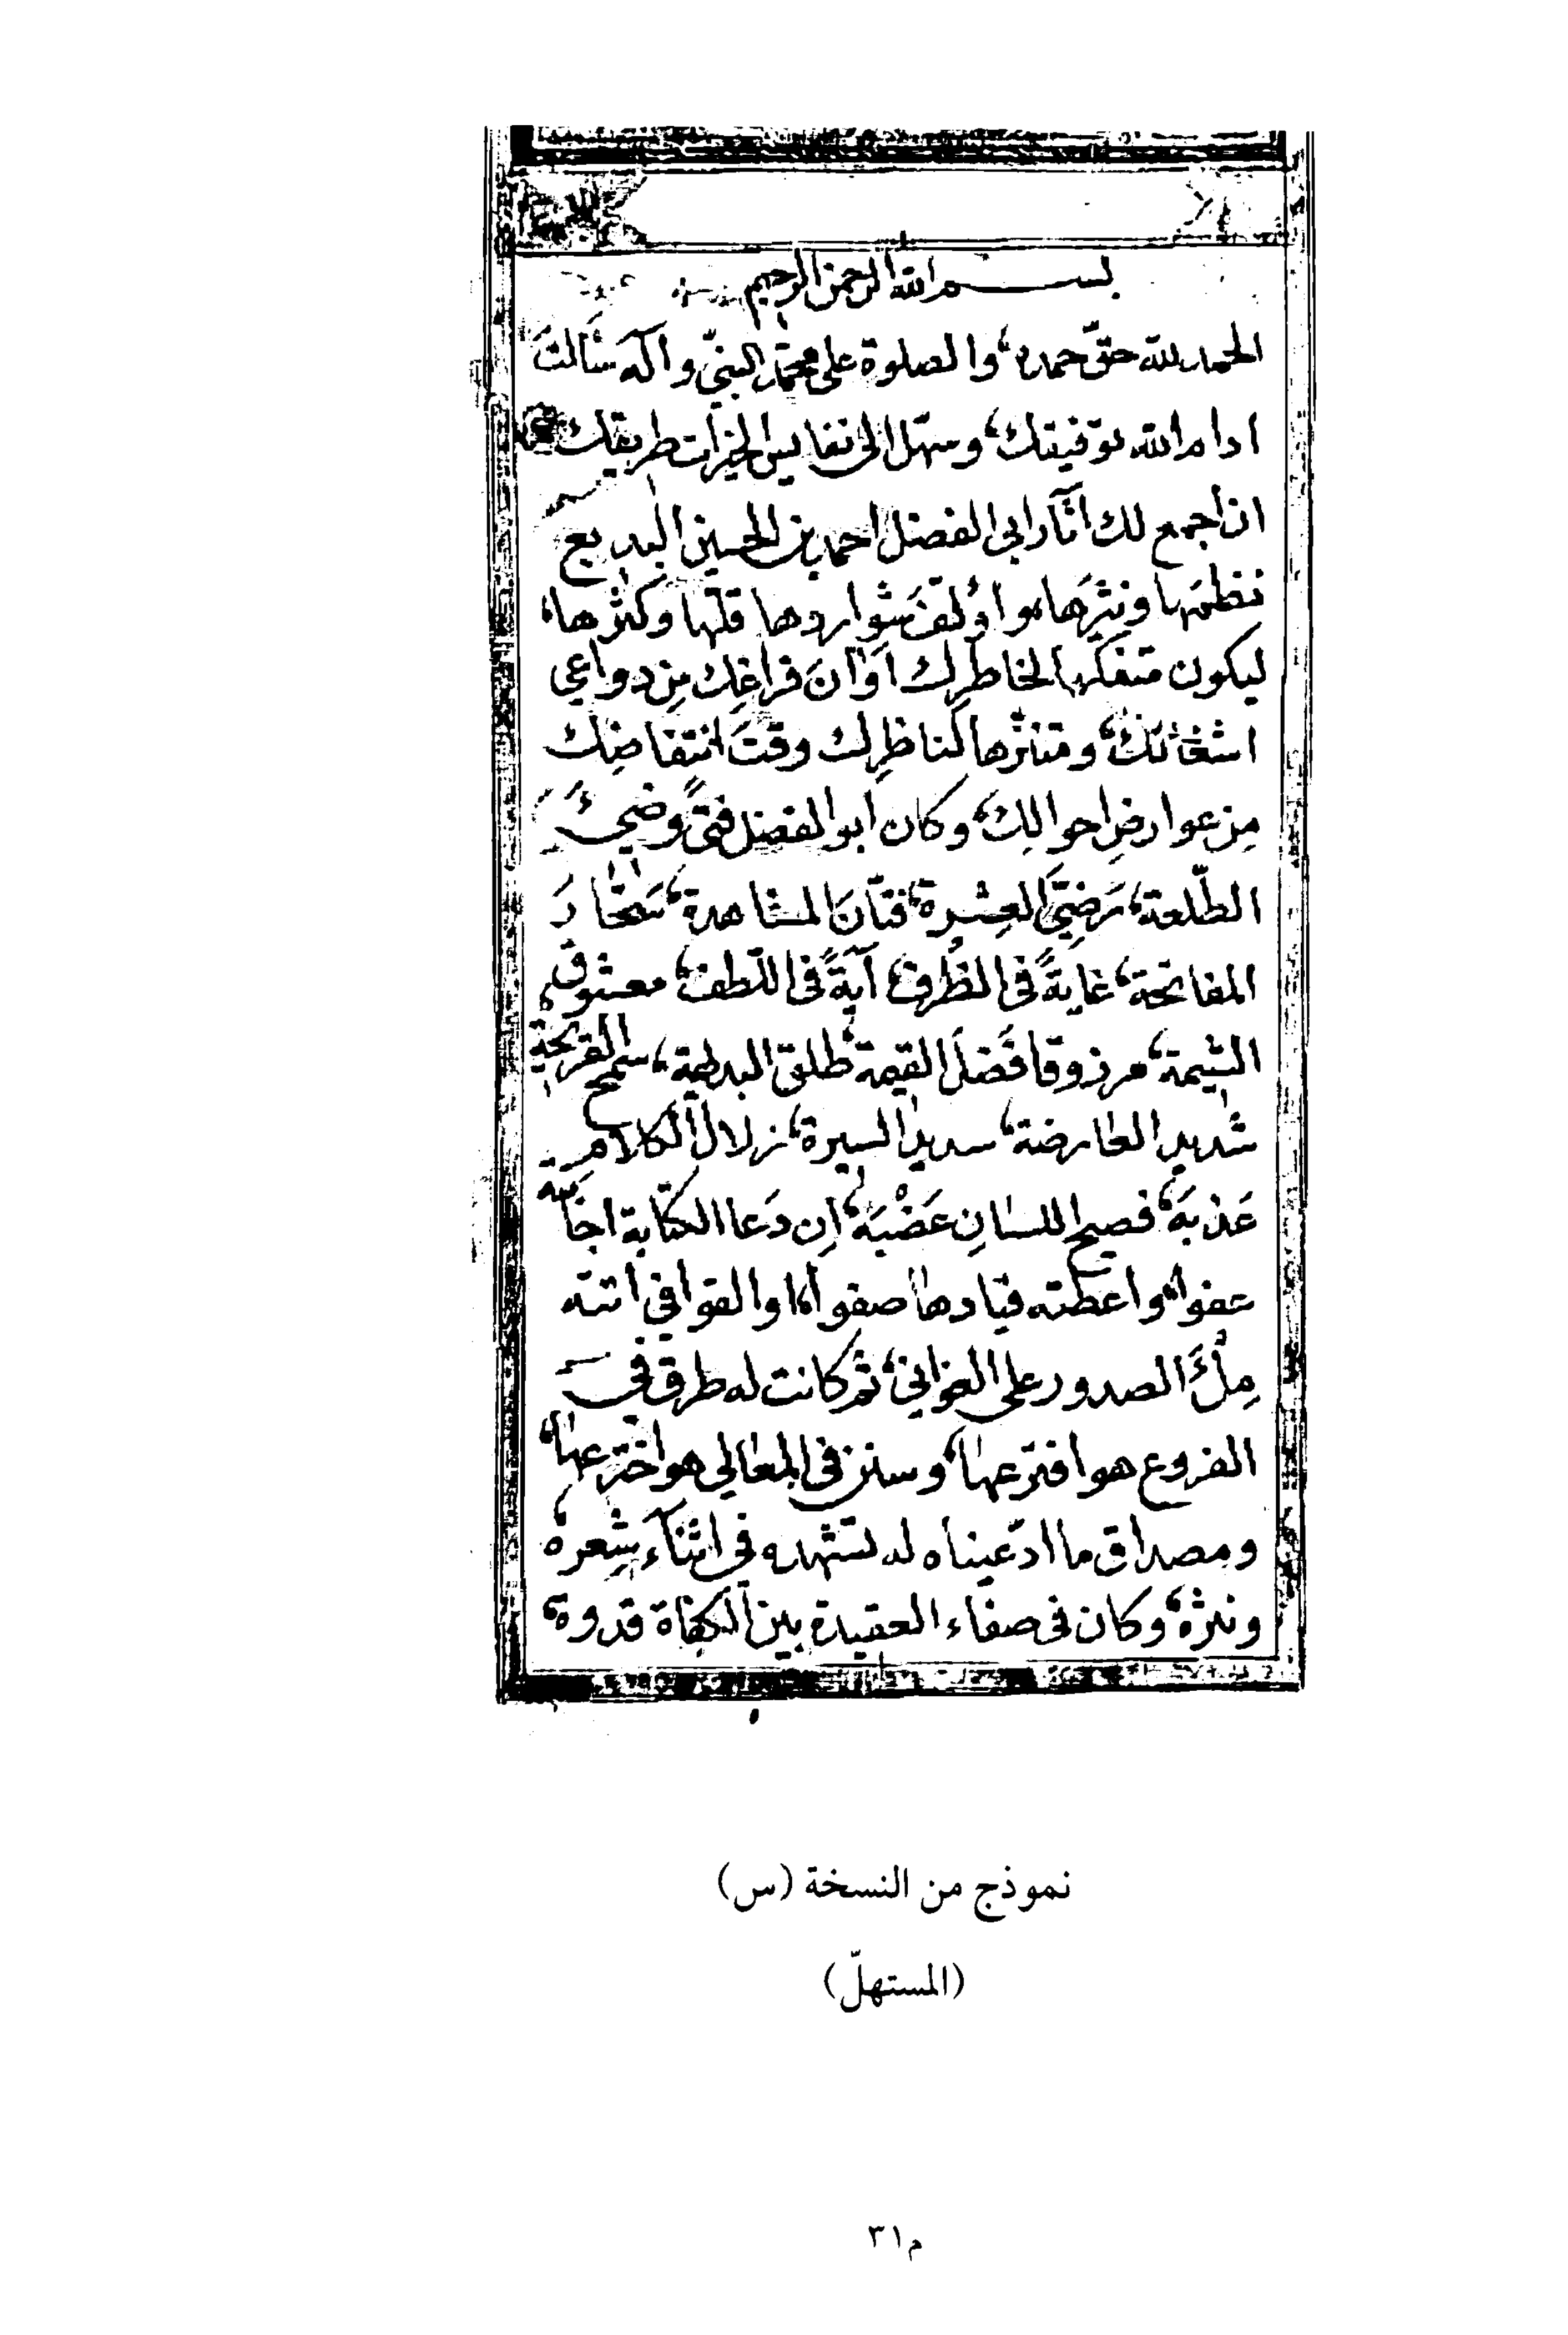 بسم الله الرحمن الرحيم
الحمد لله حقّ حمده، والصلوة على محمّد النبيّ وآله سَألتَ
ادام الله توفيقك، وسهّل الى نفايس الخيرات طريقك
ان اجمع لك آثار ابي الفضل احمد بن الحسين البديع
نظمَها ونثرَها، واؤلّفَ شواردها قلّها وكثرها،
ليكون متفكّها لخاطرِك اَوَانَ فراغِك مِن دواعي
اشغالك، ومتنزّها لناظرِك وقتَ انتفاضِك
مِن عوارضِ احوالِك، وكان ابو الفضل فتىً وضيءَ
الطّلعة، رَضِيَّ العِشرة، فتّانَ المشاهدة، سَحّارَ
المفاتحة، غايةً فى الظُرف، آيةً فى اللّطف، معشوق
الشيمة، مرزوقا فَضلَ القيمة، طلق البديهة، سمح القريحة
شديد العارضة، سديد السيرة، زلال الكلامِ
عَذبَه، فصيح اللسانِ عَضْبَه، اِن دَعا الكتابة اجابته
عفوا، واعطته قيادها صفوا، او القوافي اتته
مِلْءَ الصدور على التوافي، ثم كانت له طرق في
الفروع هو افترعها، وسنن فى المعالي هو اخترعها،
ومصداق ما ادّعيناه له تشهده في اثنآء شِعره
ونثره، وكان فى صفاء العقيدة بين الكفاة قدوة،
نموذج من النسخة (س)
(المستهلّ)
م٣١